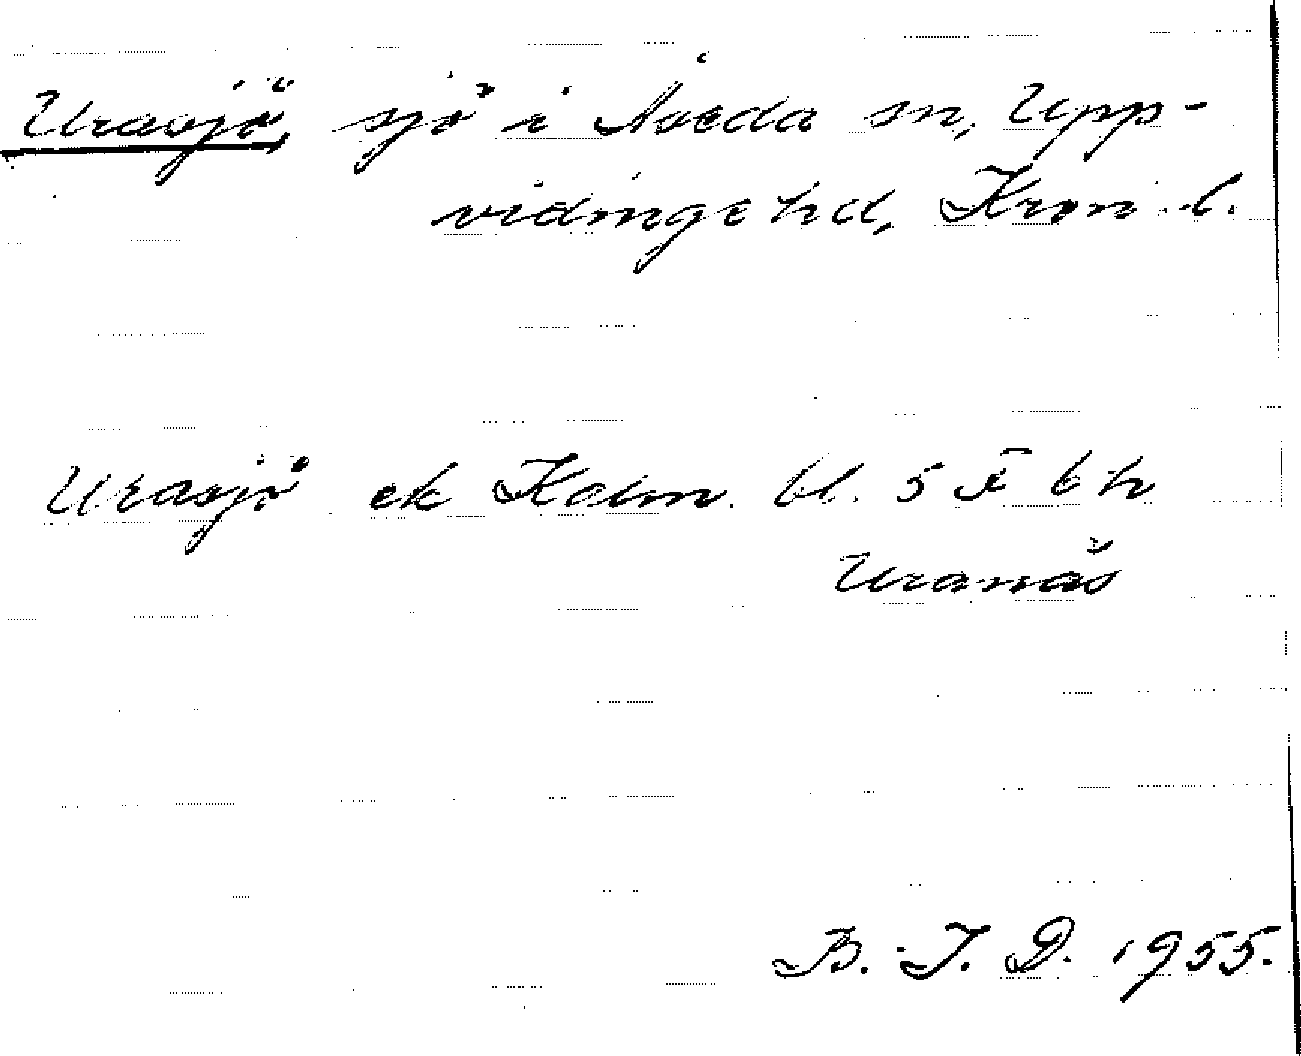 Urasjö, sjö i Åseda sn, Upp-
vidinge hd, Kron. l.
Urasjö ek Kalm. bl. 5 I b h
Uranäs
B. I. D. 1955.